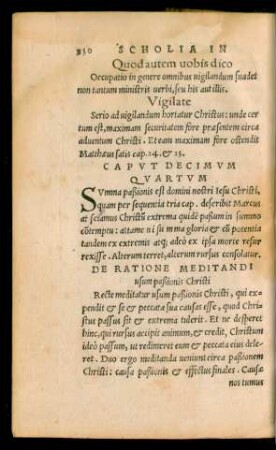 250 SCHOLIA IN
Quod autem uobis dico
Occupatio in genere omnibus uigilandum suadet
non tantum ministris uerbi, seu his aut illis.
Vigilate
Serio ad uigilandum hortatur Christus: unde cer
tum est, maximam securitatem fore præsentem circa
aduentum Christi. Et eam maximam fore ostendit
Matthæus satis cap. 24. & 25.
CAPVT DECIMVM
QVARTVM
SVmma passionis est domini nostri Iesu Christi,
quam per sequentia tria cap. describit Marcus
ut sciamus Christũ extrema quidẽ passum in summo
cõtemptu: attamẽ ni summa gloria & cũ potentia
tandem ex extremis atq; adeò ex ipsa morte resur
rexisse. Alterum terret, alterum rursus consolatur.
DE RATIONE MEDITANDI
usum passionis Christi
Recte meditatur usum passionis Christi, qui ex=
pendit & se & peccata sua causas esse, quod Chri=
stus passus sit & extrema tulerit. Et ne desperet
hinc, qui rursus accipit animum, & credit, Christum
ideò passum, ut redimeret eum & peccata eius dele=
ret. Duo ergo meditanda ueniunt circa passionem
Christi: causa passionis & effectus finales. Causæ
nos sumus